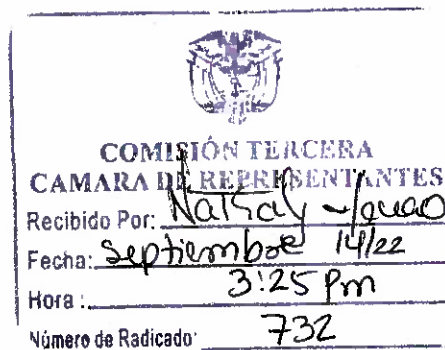 COMISIÓN TERCERA
CAMARA DE REPRESENTANTES
Recibido Por:
Fecha: septiembre 14/22
Hora: 3:25 pm
Número de Radicado: 732